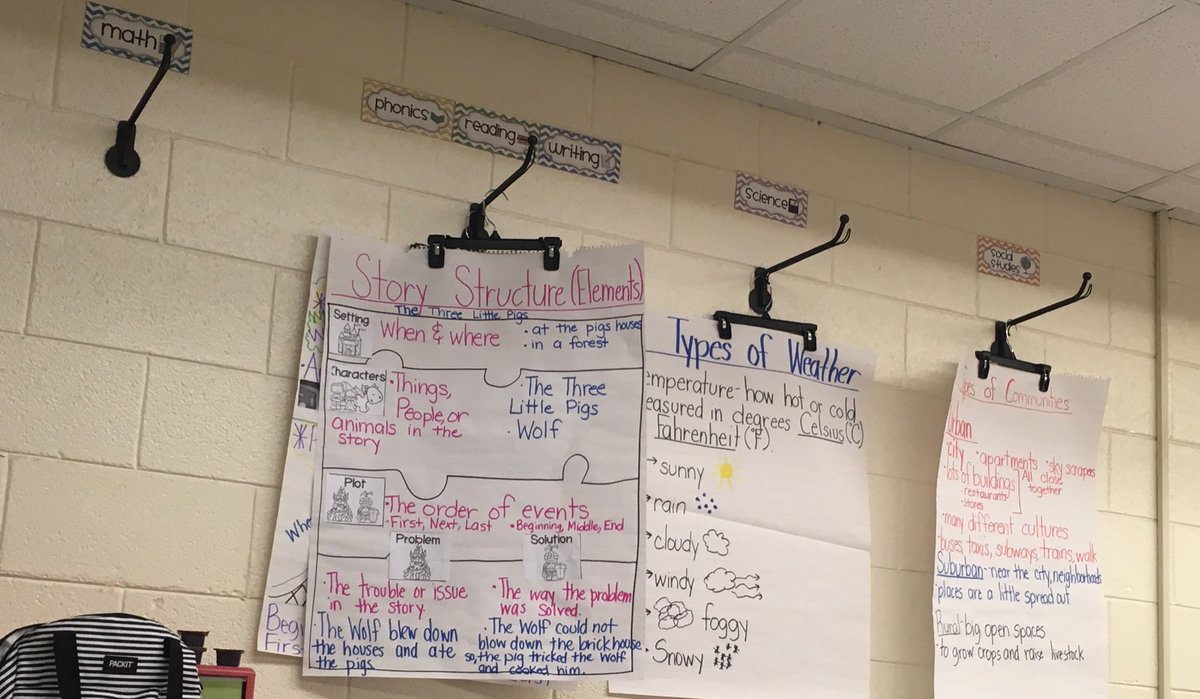 math
phonics
reading
writing
science
social
studies
Story Structure (Elements)
The Three Little Pigs
Setting
When & where
• at the pigs houses
• in a forest
Characters
• Things,
People, or
animals in the
story
• The Three
Little Pigs
• Wolf
Plot
• The order of events
• First, Next, Last
• Beginning, Middle, End
Problem
Solution
• The trouble or issue
in the story.
• The way the problem
was solved.
• The Wolf blew down
the houses and ate
the pigs
• The Wolf could not
blow down the brick house
so, the pig tricked the Wolf
and cooked him.
Types of Weather
emperature - how hot or cold
easured in degrees Celsius (°C)
Fahrenheit (°F).
→ sunny
→ rain
→ cloudy
→ windy
→ foggy
→ Snowy
pes of Communities
Urban
• city • apartments • sky scrapers
• lots of buildings
• restaurants
• stores
All close
together
• many different cultures
• buses, taxis, subways, trains, walk
Suburban - near the city, neighborhoods
• places are a little spread out
Rural - big open spaces
• to grow crops and raise livestock
Whe
Beg
Firs
PACKIT